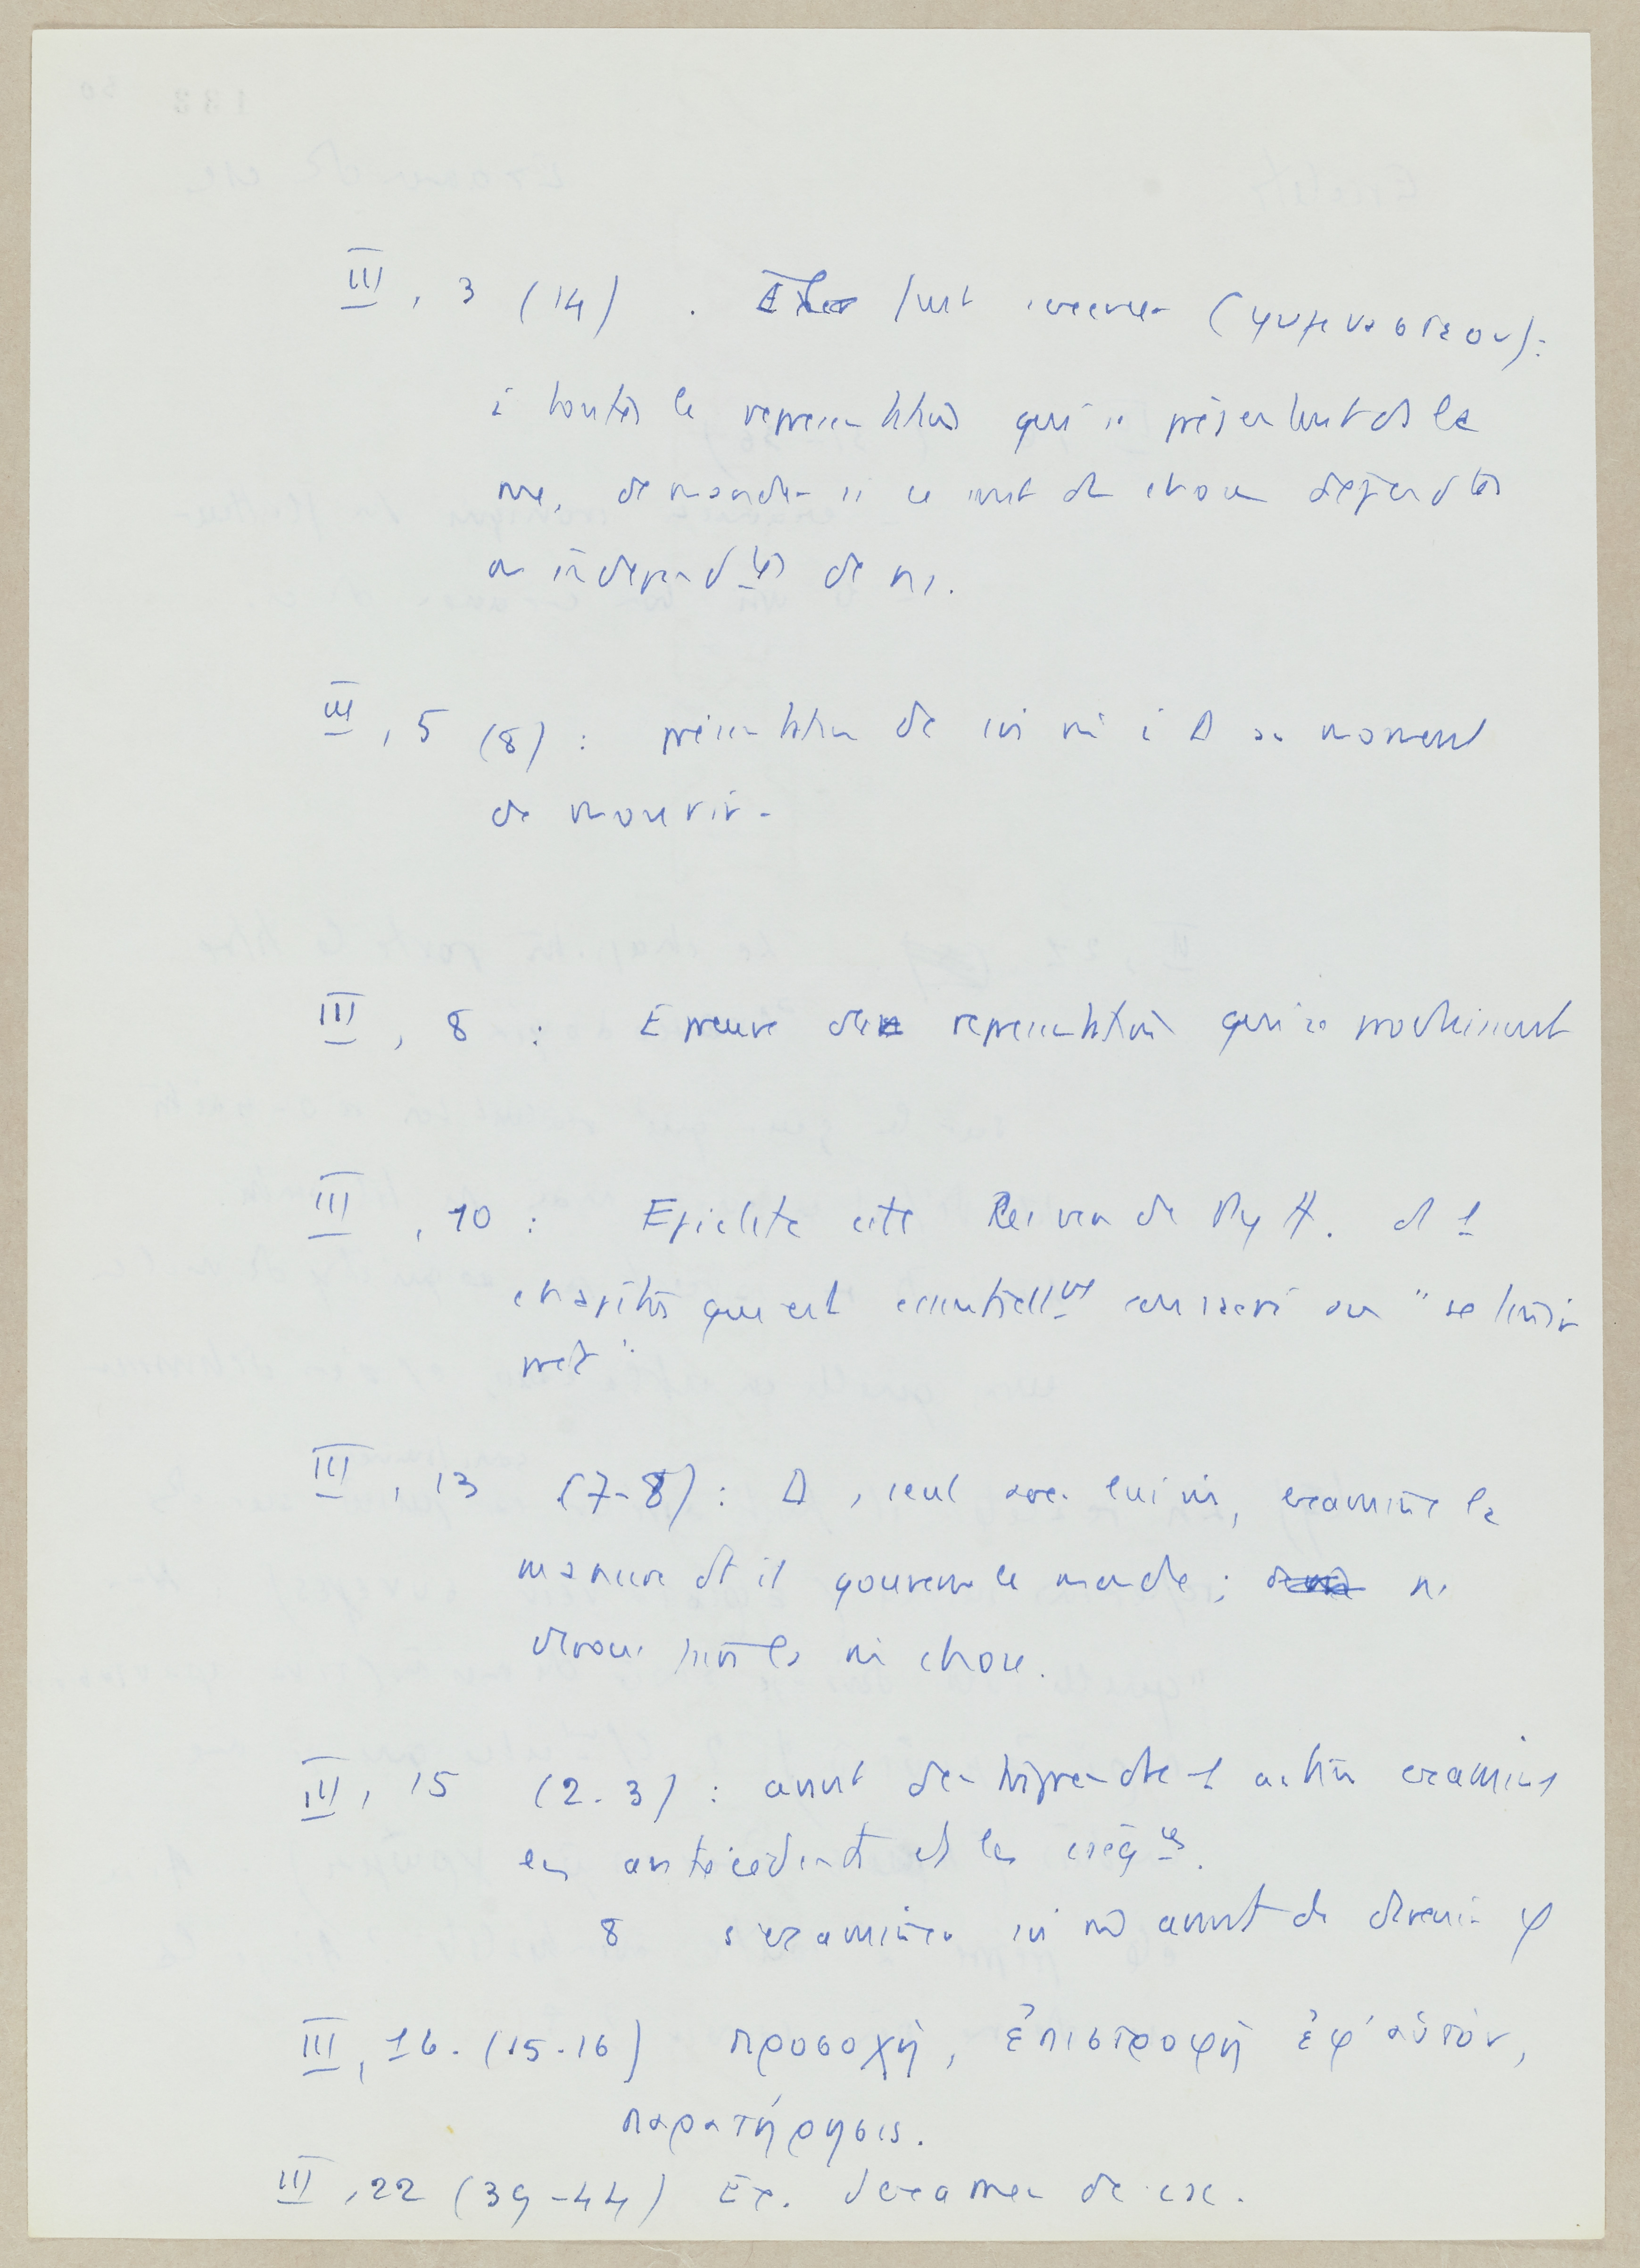 III, 3 (14). faut exercer (γυμναστεον):
à toutes les representations qui se présentent ds la
rue, demander si ce sont des choses dépendtes
ou independtes de ns.
III, 5 (8) : présentation de soi mê à D au moment
de mourir.
III, 8 : Epreuve des representations qui se produisent
III, 10 : Epictete cite les vers de Pyth. ds 1
chapitre qui est essentiellt consacré au "se tenir
prêt".
III, 13 (7-8) : D, seul avec lui m, examine la
maniere dt il gouverne le monde ; ns
devons faire la m chose.
III, 15 (2.3) : avant d'entreprendre 1 action examiner
les antécédents et les cséqces.
8 s'examiner soi m avant de devenir φ
III, 16. (15-16) προσοχή, ἐπιστροφὴ ἐφ' αὑτόν,
παρατήρησις.
III, 22 (39-44) Ex. d'examen de csc.